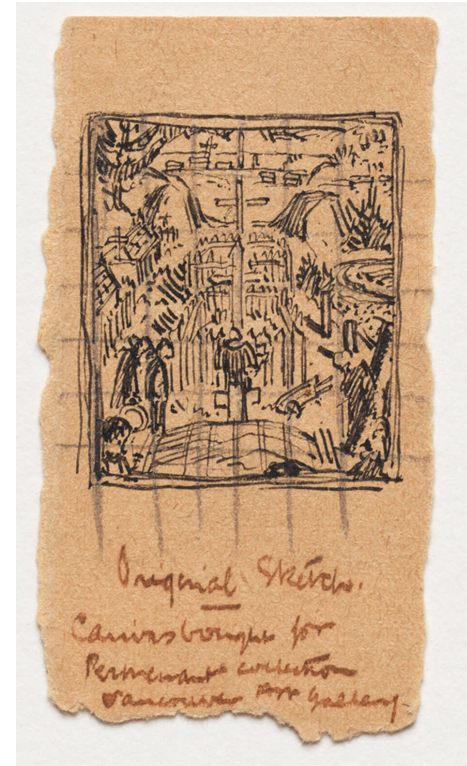 Original Sketch.
Canvas bought for
Permenant collection
Vancouver Art Gallery.